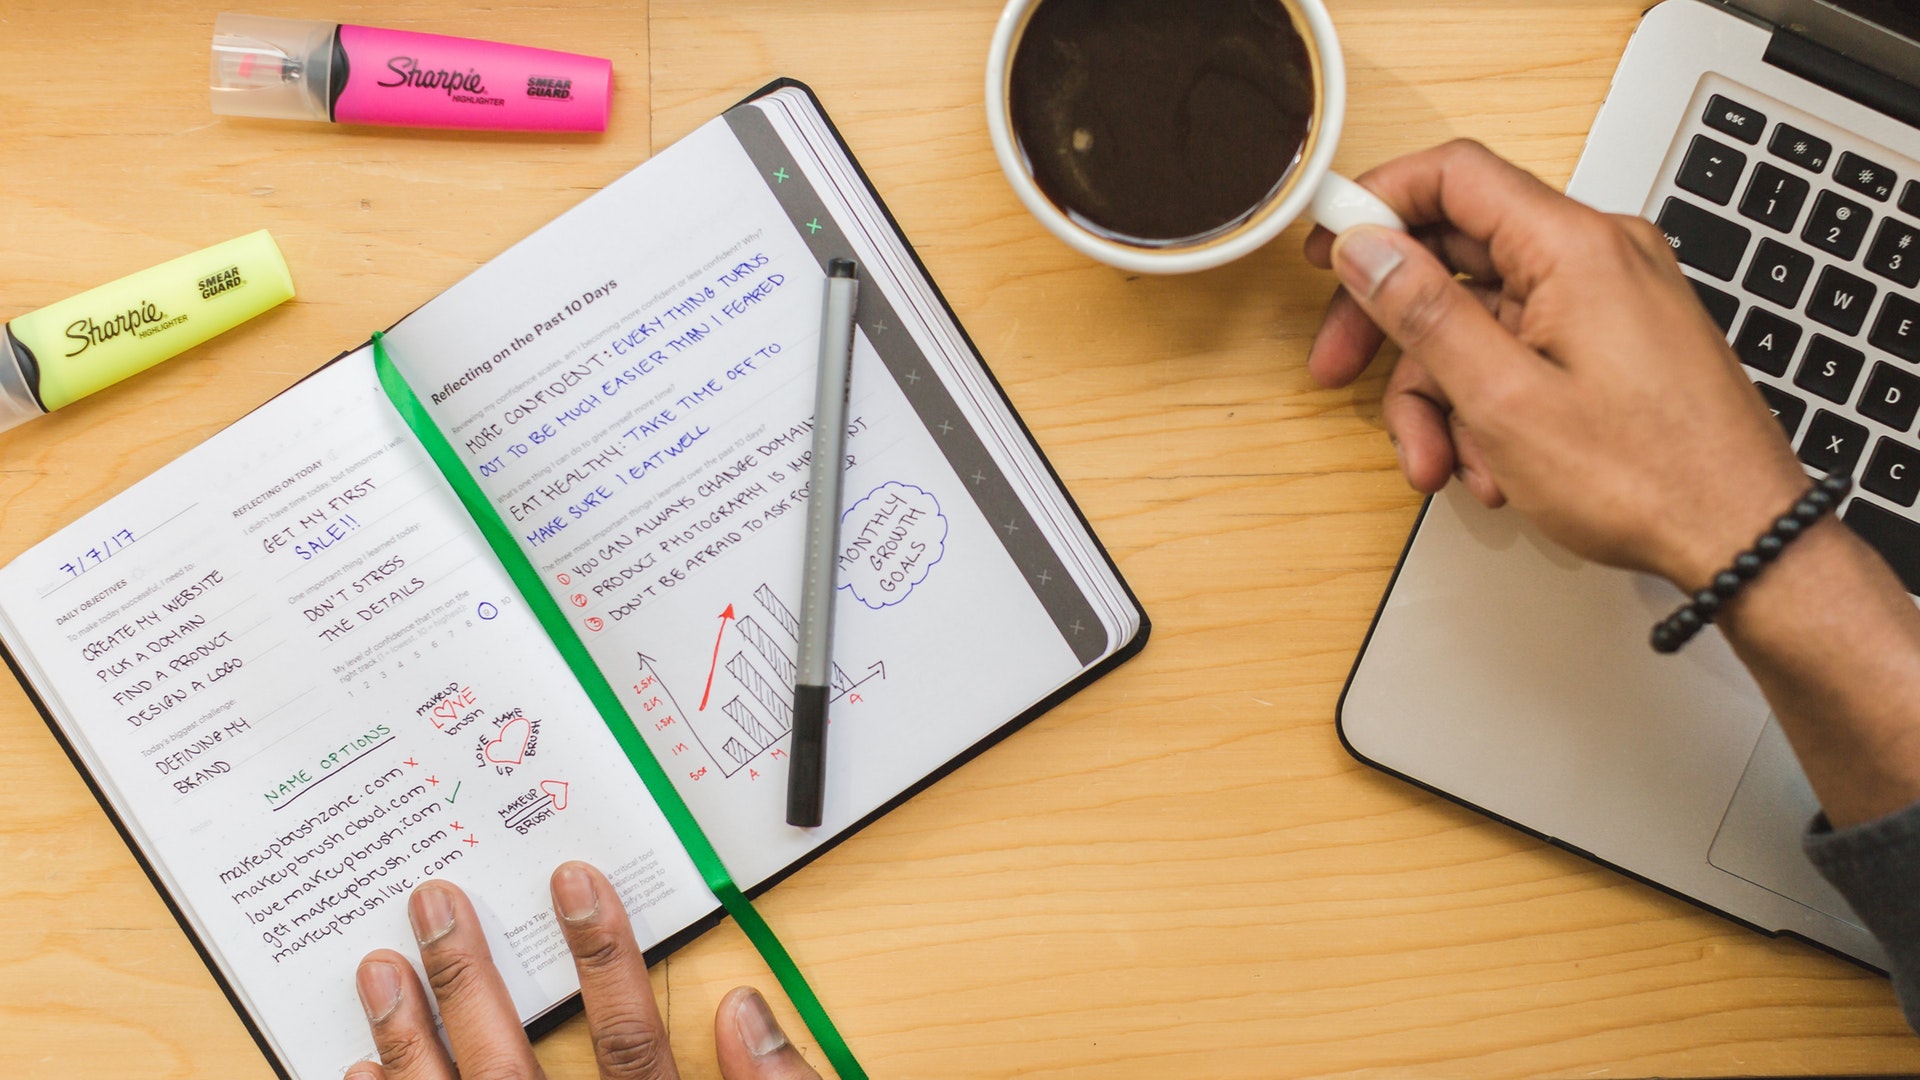 Sharpie
HIGHLIGHTER
SMEAR
GUARD
Sharpie
HIGHLIGHTER
SMEAR
GUARD
7/7/17
DAILY OBJECTIVES
To make today successful, I need to:
CREATE MY WEBSITE
PICK A DOMAIN
FIND A PRODUCT
DESIGN A LOGO
Today's biggest challenge:
DEFINING MY
BRAND
REFLECTING ON TODAY
I didn't have time today, but tomorrow I will:
GET MY FIRST
SALE!!
One important thing I learned today:
DON'T STRESS
THE DETAILS
My level of confidence that I'm on the
right track (1 = lowest, 10 = highest):
1 2 3 4 5 6 7 8 9 10
Notes
NAME OPTIONS
makeupbrushzone.com x
makeupbrushcloud.com x
lovemakeupbrush.com ✓
getmakeupbrush.com x
makeupbrushlive.com x
makeup
LOVE
brush
LOVE MAKE
UP BRUSH
MAKEUP
BRUSH
Today's Tip:
a critical tool
for
relationships
with your
learn how to
grow your
guide
to email
.com/guides.
Reflecting on the Past 10 Days
Reviewing my confidence scales, am I becoming more confident or less confident? Why?
MORE CONFIDENT: EVERYTHING TURNS
OUT TO BE MUCH EASIER THAN I FEARED
What's one thing I can do to give myself more time?
EAT HEALTHY: TAKE TIME OFF TO
MAKE SURE I EAT WELL
The three most important things I learned over the past 10 days?
① YOU CAN ALWAYS CHANGE DOMAIN
② PRODUCT PHOTOGRAPHY IS
③ DON'T BE AFRAID TO ASK FOR
MONTHLY
GROWTH
GOALS
2.5K
2K
1.5K
1K
500
A M A
esc
F1
F2
~
!
1
@
2
#
3
tab
Q
W
E
A
S
D
Z
X
C